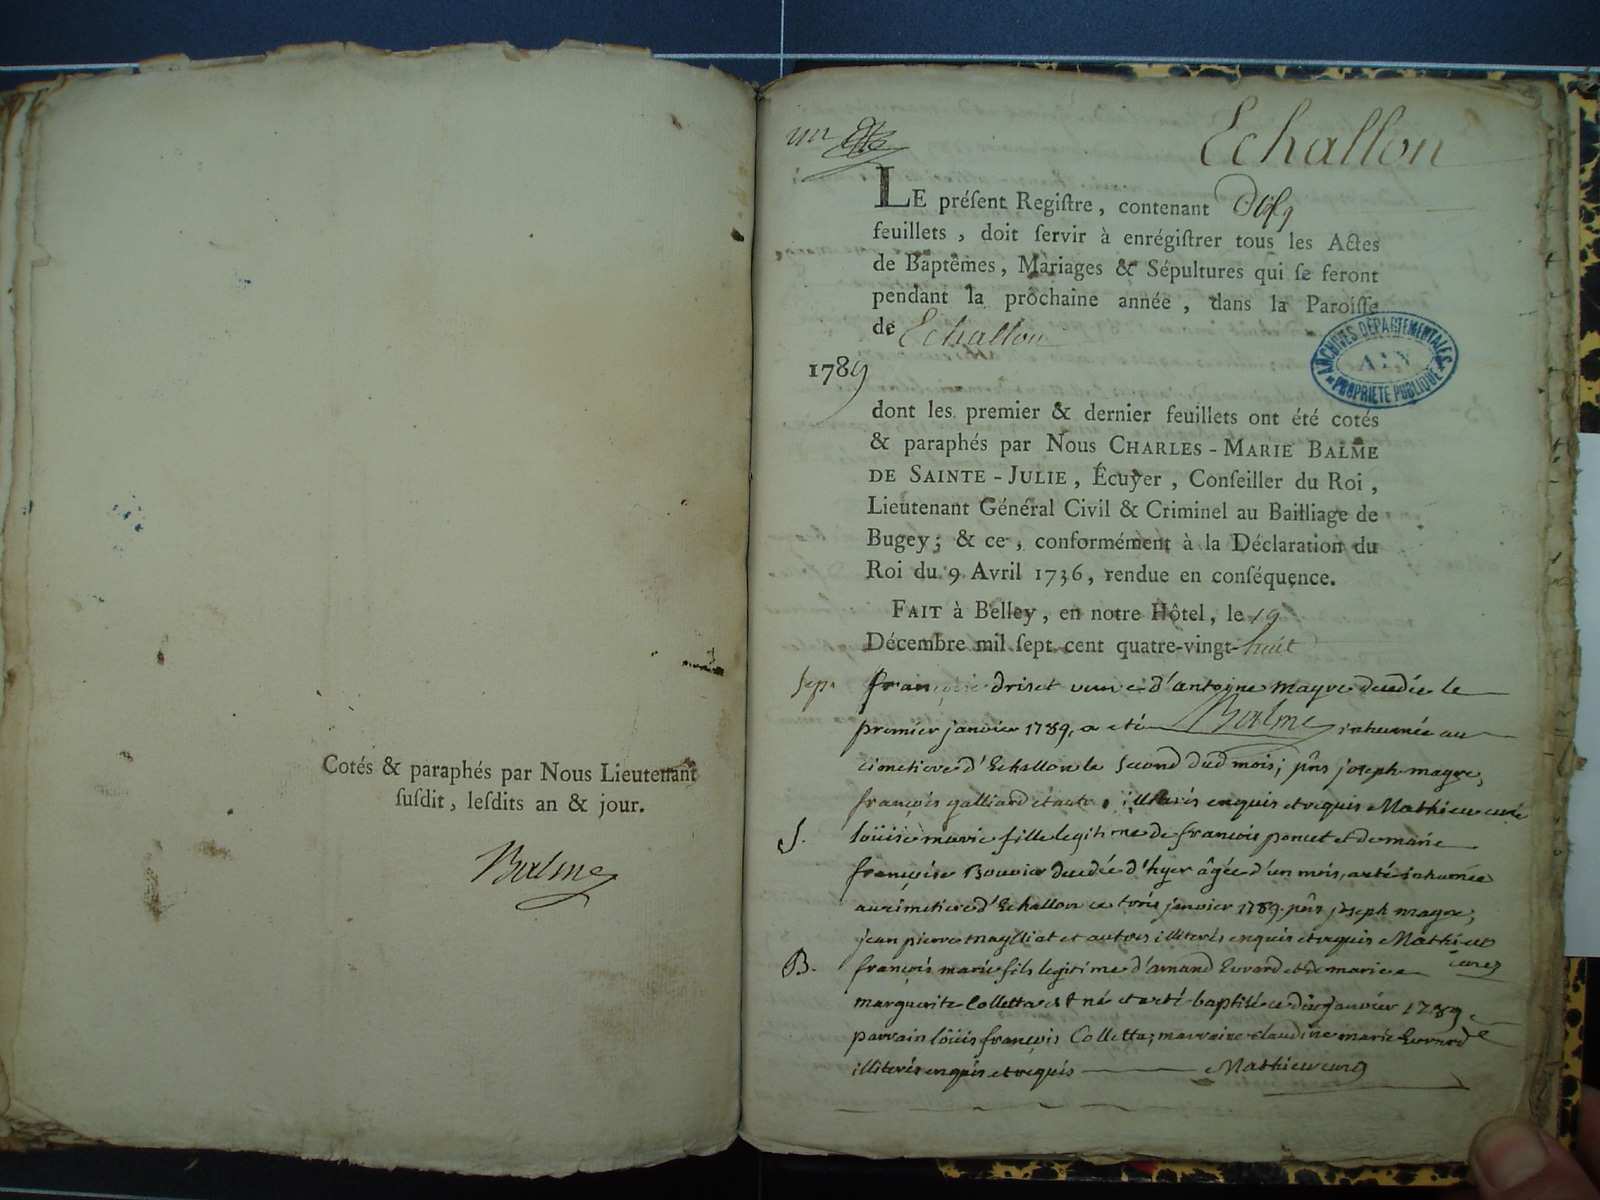 Cotés & paraphés par Nous Lieutenant
ſuſdit, leſdits an & jour.
Balme
un
Echallon
LE préſent Regiſtre, contenant
feuillets, doit ſervir à enrégiſtrer tous les Actes
de Baptêmes, Mariages & Sépultures qui ſe feront
pendant la prochaine année, dans la Paroiſſe
de Echallon
ARCHIVES DÉPARTEMENTALES
AIN
PROPRIÉTÉ PUBLIQUE
1789
dont les premier & dernier feuillets ont été cotés
& paraphés par Nous CHARLES-MARIE BALME
DE SAINTE-JULIE, Écuyer, Conſeiller du Roi,
Lieutenant Général Civil & Criminel au Bailliage de
Bugey; & ce, conformément à la Déclaration du
Roi du 9 Avril 1736, rendue en conſéquence.
FAIT à Belley, en notre Hôtel, le 19
Décembre mil ſept cent quatre-vingt-huit
Sep. françoise driset veuve d'antoine magre decedée le
premier janvier 1789, a eté Balme inhumée au
cimetiere d'Echallon le second dud mois; pñs joseph magre,
françois galliard et autr illiterés enquis et requis Mathieu curé
S. loüise marie fille legitime de françois poncet et de marie
françoise Bouvier decedée d'hyer âgée d'un mois, a eté inhumée
au cimetiere d'Echallon ce trois janvier 1789. pñs joseph magre,
jean pierre maylliat et autres illiterés enquis et requis Mathieu
curé
B. françois marie fils legitime d'amand Evrard et de marie
marguerite Colletta est né et a eté baptisé ce dix janvier 1789.
parrain loüis françois Colletta; marraine claudine marie Evrard
illiterés enquis et requis Mathieu curé